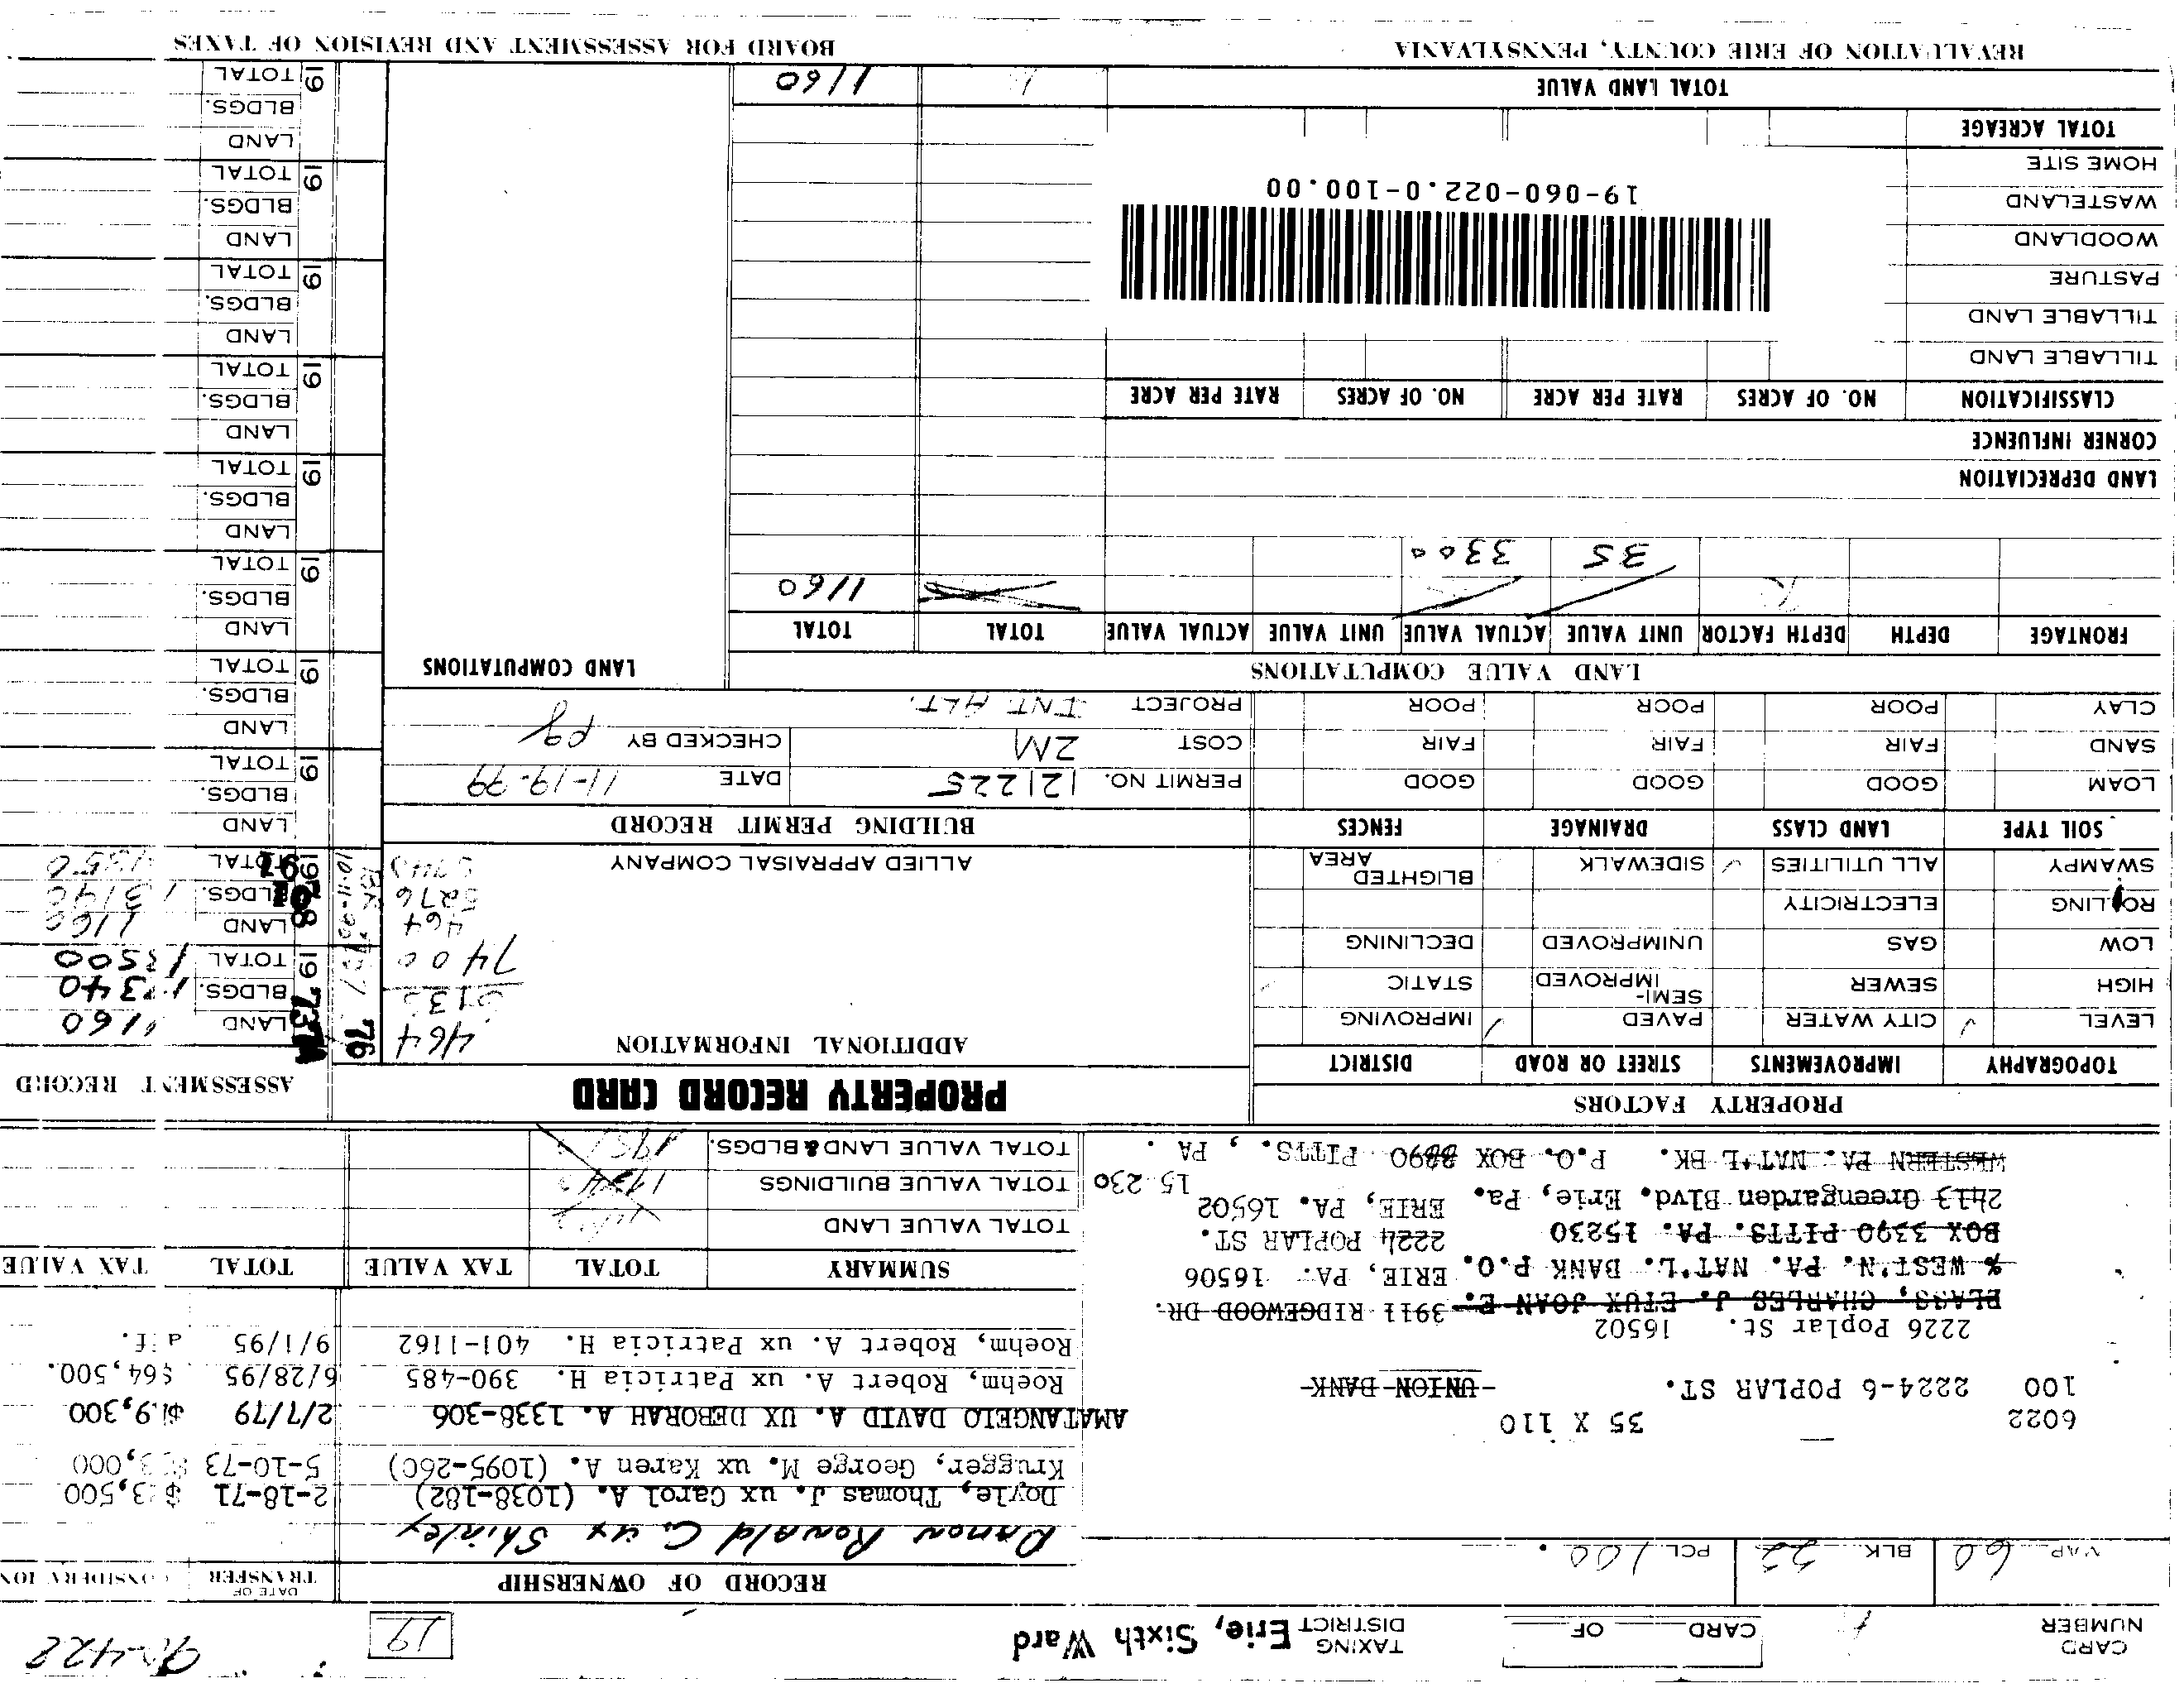 CARD NUMBER 1 CARD OF TAXING DISTRICT Erie, Sixth Ward 19
MAP 60 BLK 22 PCL 100.
RECORD OF OWNERSHIP DATE OF TRANSFER CONSIDERATION
Ronald C. ux Shirley
Doyle, Thomas J. ux Carol A. (1038-182) 2-18-71
Krugger, George M. ux Karen A. (1095-260) 5-10-73
AMATANGELO DAVID A. UX DEBORAH A. 1338-306 2/7/79
Roehm, Robert A. ux Patricia H. 390-485 6/28/95 $64,500.
Roehm, Robert A. ux Patricia H. 401-1162 9/1/95
6022 35 X 110
100 2224-6 POPLAR ST. UNION BANK
2226 Poplar St. 16502
PLASS, CHARLES J. ETUX JOAN E. 3911 RIDGEWOOD DR.
% WEST'N. PA. NAT'L. BANK P.O. ERIE, PA. 16506
BOX 3390 PITTS. PA. 15230 2224 POPLAR ST.
2413 Greengarden Blvd. Erie, Pa. ERIE, PA. 16502
WESTERN PA. NAT'L BK. P.O. BOX PITTS., PA.
15230
SUMMARY TOTAL TAX VALUE TOTAL TAX VALUE
TOTAL VALUE LAND
TOTAL VALUE BUILDINGS
TOTAL VALUE LAND & BLDGS.
PROPERTY FACTORS
TOPOGRAPHY IMPROVEMENTS STREET OR ROAD DISTRICT
LEVEL CITY WATER PAVED IMPROVING
HIGH SEWER SEMI-IMPROVED STATIC
LOW GAS UNIMPROVED DECLINING
ROLLING ELECTRICITY
SWAMPY ALL UTILITIES SIDEWALK BLIGHTED AREA
SOIL TYPE LAND CLASS DRAINAGE FENCES
LOAM GOOD GOOD GOOD
SAND FAIR FAIR FAIR
CLAY POOR POOR POOR
PROPERTY RECORD CARD
ADDITIONAL INFORMATION
464
7400
464
5276
5740
ALLIED APPRAISAL COMPANY
BUILDING PERMIT RECORD
PERMIT NO. 121225 DATE 11-19-79
COST 2M CHECKED BY
PROJECT INT. ALT.
ASSESSMENT RECORD
76
LAND 1160
19 73 BLDGS.
TOTAL
LAND 1160
19 BLDGS.
TOTAL
LAND
BLDGS.
19 TOTAL
LAND
BLDGS.
19 TOTAL
LAND
BLDGS.
19 TOTAL
LAND
BLDGS.
19 TOTAL
LAND
BLDGS.
19 TOTAL
LAND
BLDGS.
19 TOTAL
LAND
BLDGS.
19 TOTAL
LAND
BLDGS.
19 TOTAL
LAND VALUE COMPUTATIONS
LAND COMPUTATIONS
FRONTAGE DEPTH DEPTH FACTOR UNIT VALUE ACTUAL VALUE UNIT VALUE ACTUAL VALUE TOTAL TOTAL
1160
35 3300
LAND DEPRECIATION
CORNER INFLUENCE
CLASSIFICATION NO. OF ACRES RATE PER ACRE NO. OF ACRES RATE PER ACRE
TILLABLE LAND
TILLABLE LAND
PASTURE
WOODLAND
WASTELAND
HOME SITE
19-060-022.0-100.00
TOTAL ACREAGE
TOTAL LAND VALUE 1160
REVALUATION OF ERIE COUNTY, PENNSYLVANIA
BOARD FOR ASSESSMENT AND REVISION OF TAXES